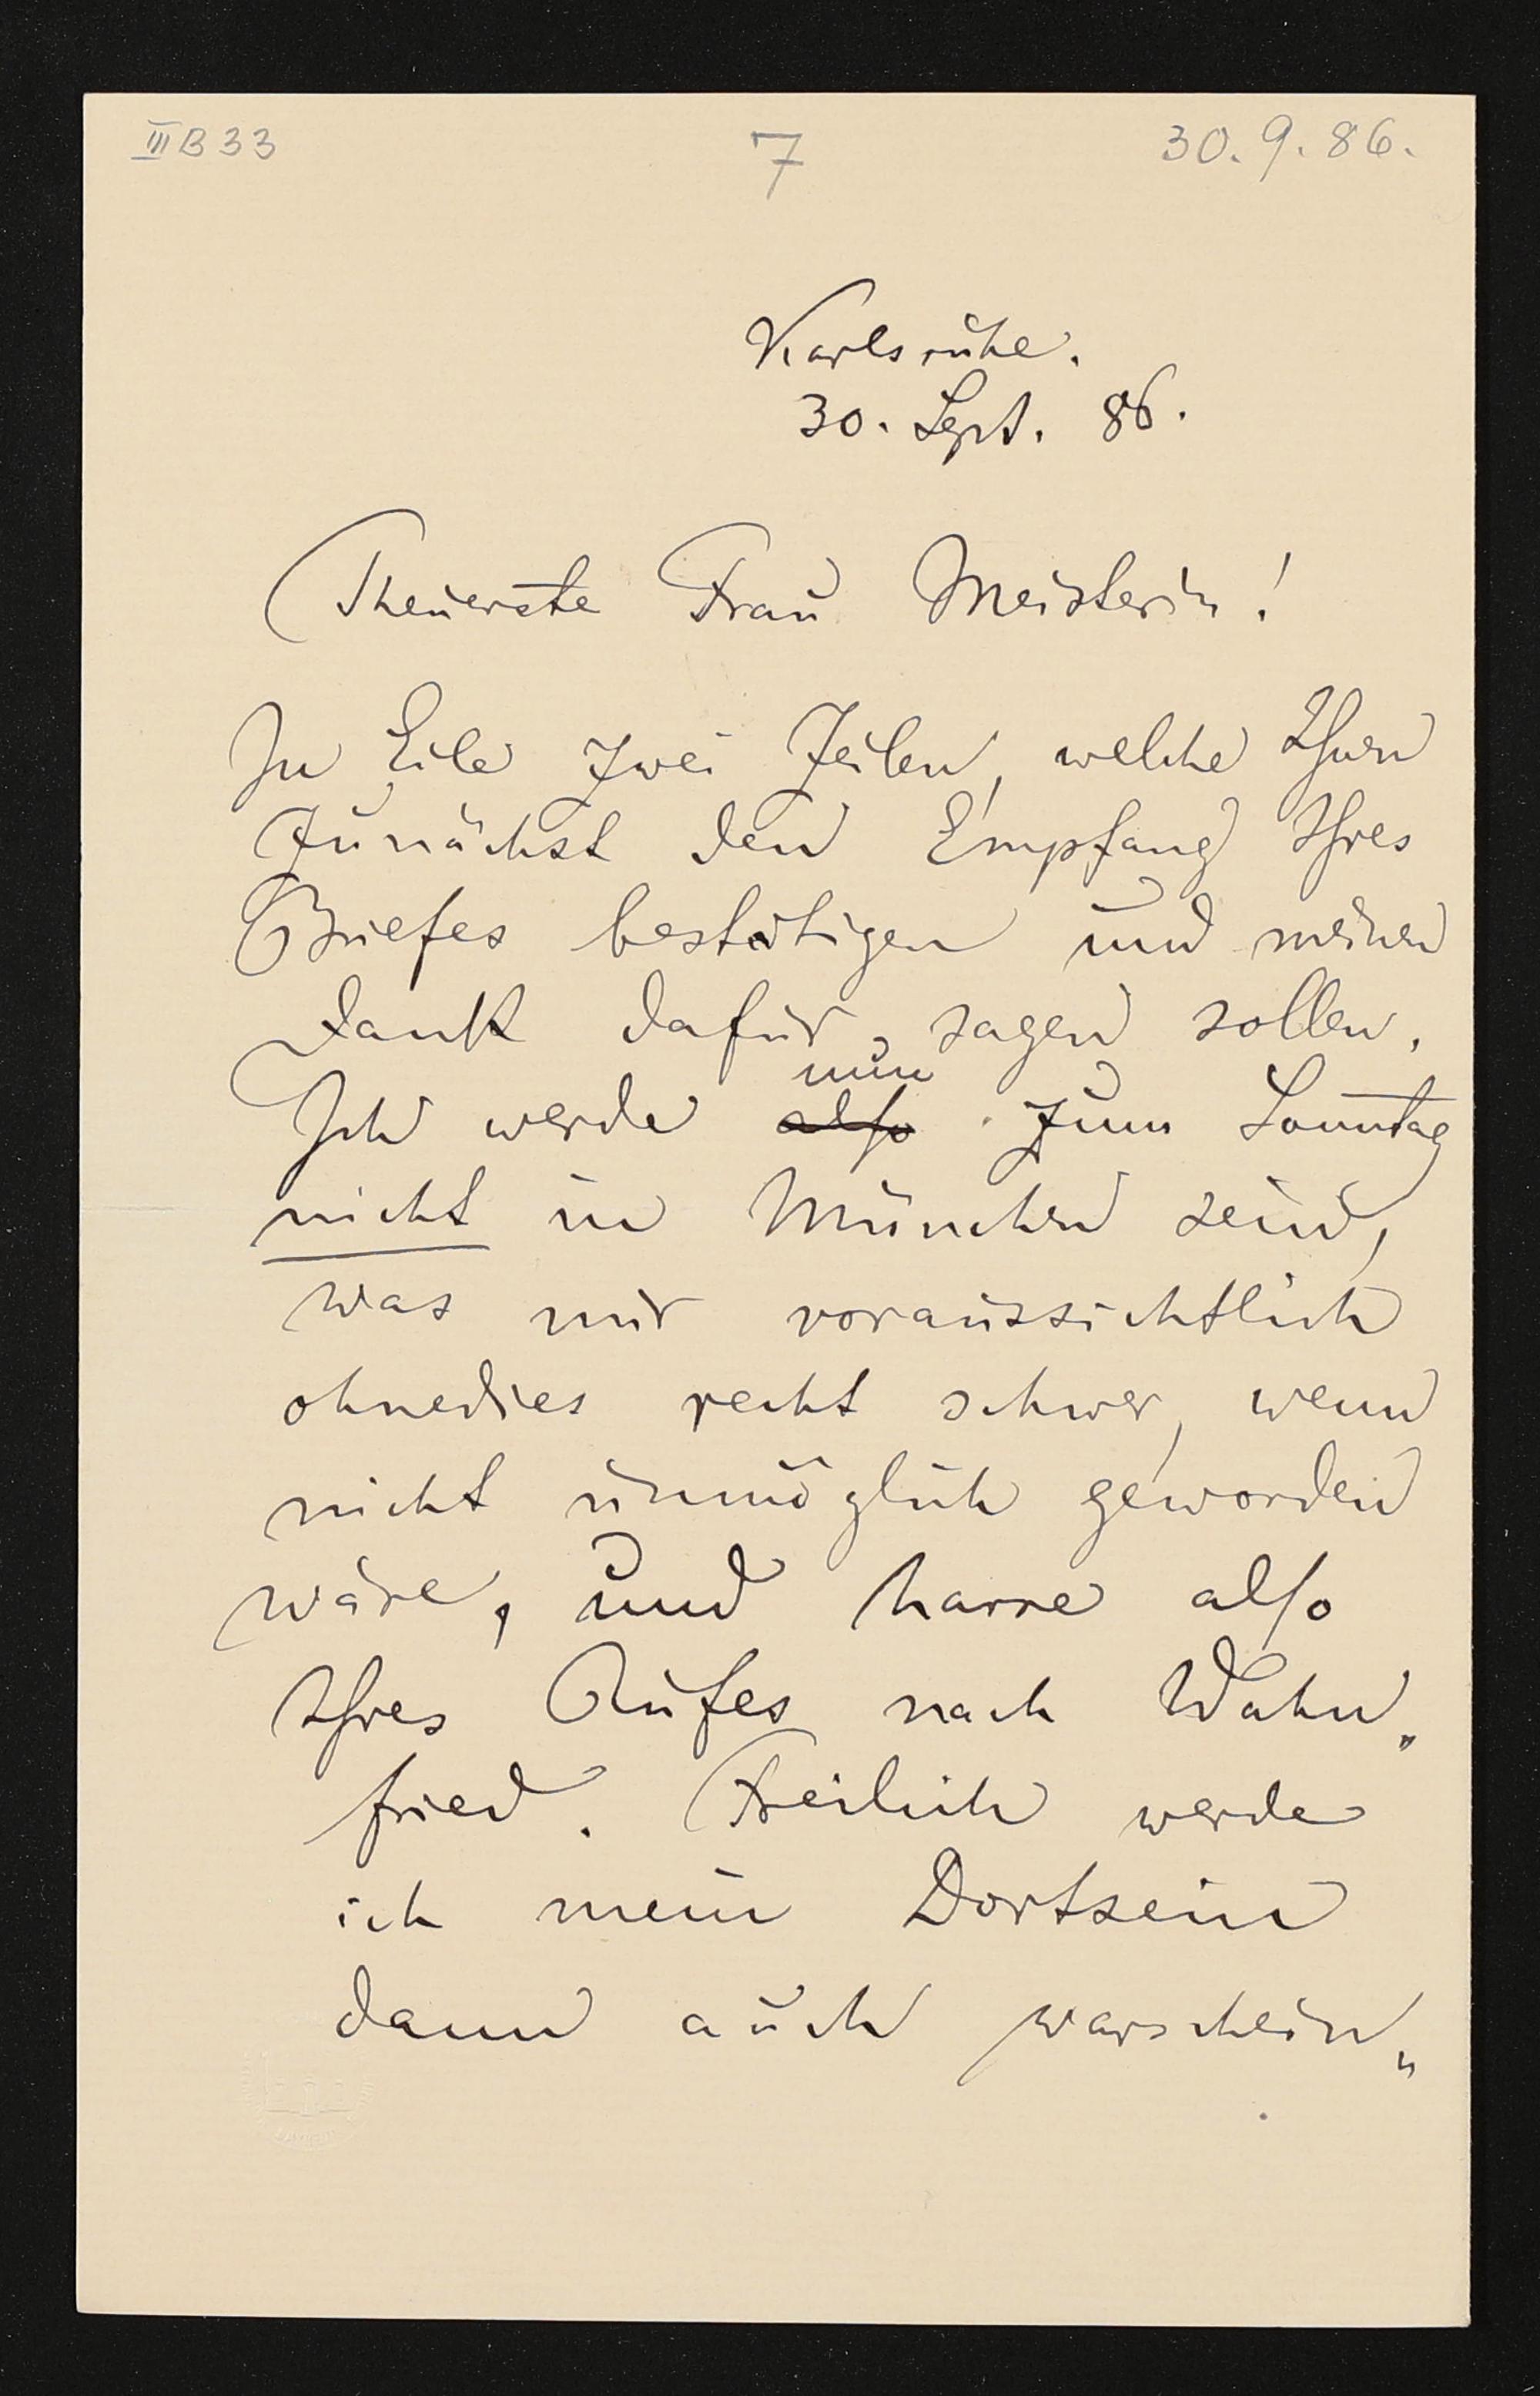 III B 33 7 30. 9. 86.
Karlsruhe.
30. Sept. 86.
Theuerste Frau Meisterin!
In Eile zwei Zeilen, welche Ihnen
zunächst den Empfang Ihres
Briefes bestätigen und meinen
Dank dafür sagen sollen.
nun
Ich werde also zum Sonntag
nicht in München sein,
was mir voraussichtlich
ohnedies recht schwer, wenn
nicht unmöglich geworden
wäre, und harre also
Ihres Rufes nach Wahn„
fried. Freilich werde
ich mein Dortsein
dann auch warschein„